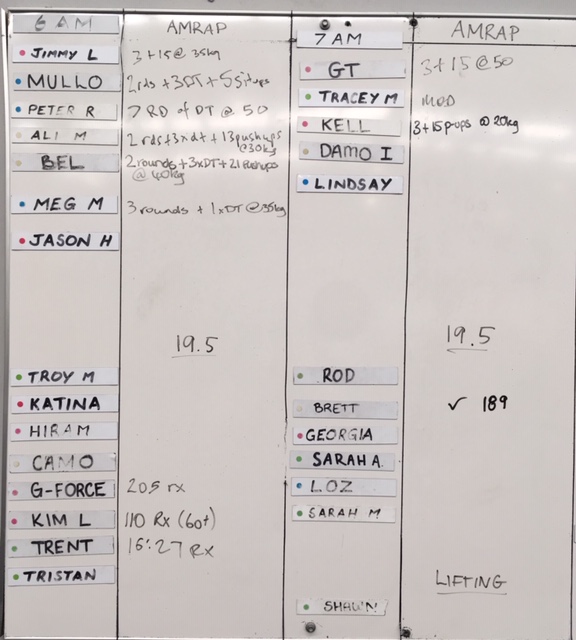 6 AM AMRAP
JIMMY L 3+15@35kg
MULLO 2rds +3DT+5situps
PETER R 7 RD of DT @ 50
ALI M 2 rds+3xdt+13pushups
@30kg
BEL 2rounds+3xDT+21pushups
@40kg
MEG M 3 rounds + 1xDT@35kg
JASON H
19.5
TROY M
KATINA
HIRAM
CAMO
G-FORCE 205 rx
KIM L 110 Rx (60+)
TRENT 16:27 Rx
TRISTAN
7 AM AMRAP
GT 3+15@50
TRACEY M MOD
KELL 3+15p-ups @ 20kg
DAMO I
LINDSAY
19.5
ROD
BRETT ✓ 189
GEORGIA
SARAH A.
LOZ
SARAH M
LIFTING
SHAWN